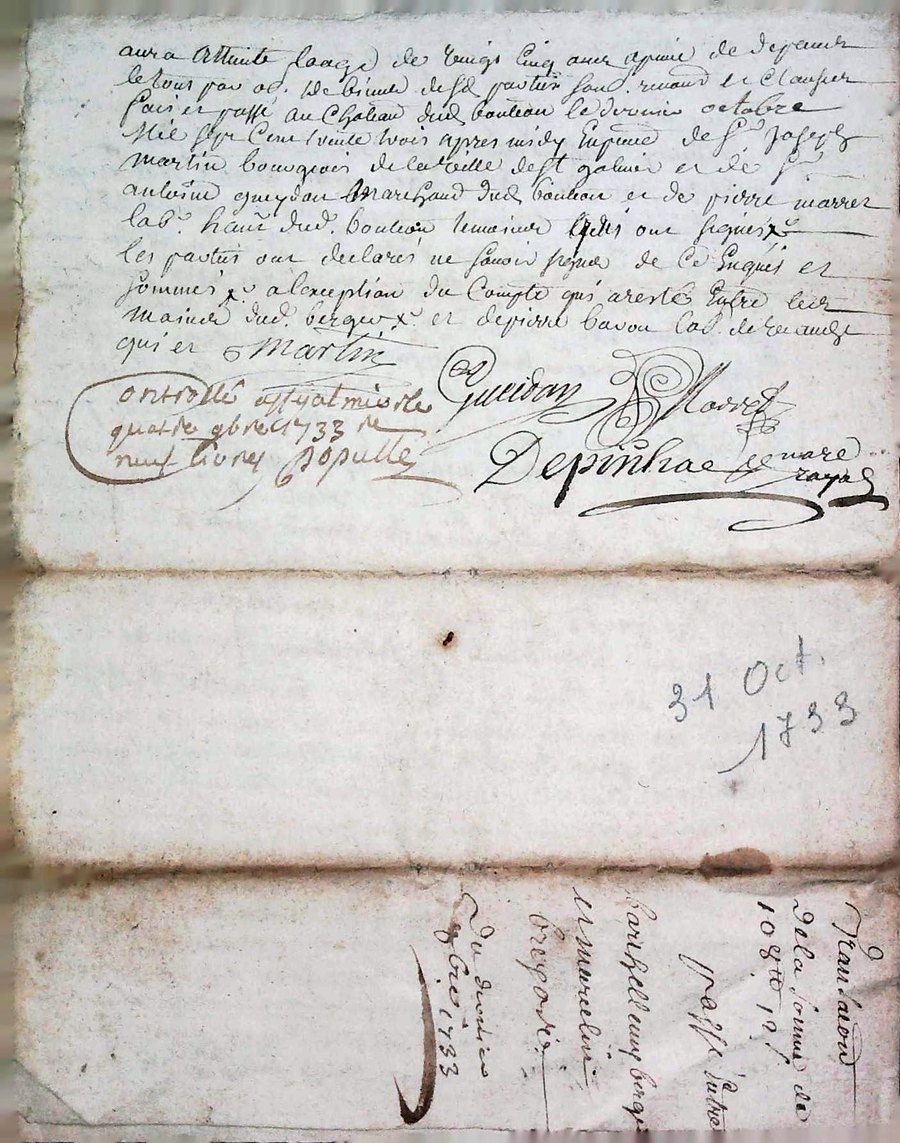 aura Atteinte laage de vingt Cinq ans apeine de depens
le tout par ac. de biens desd parties sous. renond et Clauses
fait et passé au Chateau dud bouteon le dernier octobre
Mil sept Cent trente trois apres midy En de Sr Joseph
Martin bourgeois de la ville de st galmier et de Sr
antoine gueydan Marchand dud bouteon et de pierre marret
lab. habt dud. bouteon temoins qui ont signés
les parties ont declarés ne savoir signer de Ce Enquis et
sommés a lexception du Compte qui a resté Entre les
mains dud. berger et de pierre bavou lab. de
qui et Martin
Gueidan Marret
ontrollé a st galmier le
quatre gbre 1733 re
neuf livres Popullé
Depinhac notaire
royal
31 Oct.
1733
Transaction
De la somme de
108tt 12 s
passé Entre
barthellemy berger
et marcelin
brigore
Du dernier
gbre 1733